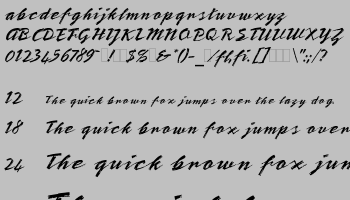 abcdefghijklmnopqrstuvwxyz
ABCDEFGHIJKLMNOPQRSTUVWXYZ
0123456789 ! $%&*()-_/ . [] \";:/?
12 The quick brown fox jumps over the lazy dog.
18 The quick brown fox jumps over
24 The quick brown fox jum